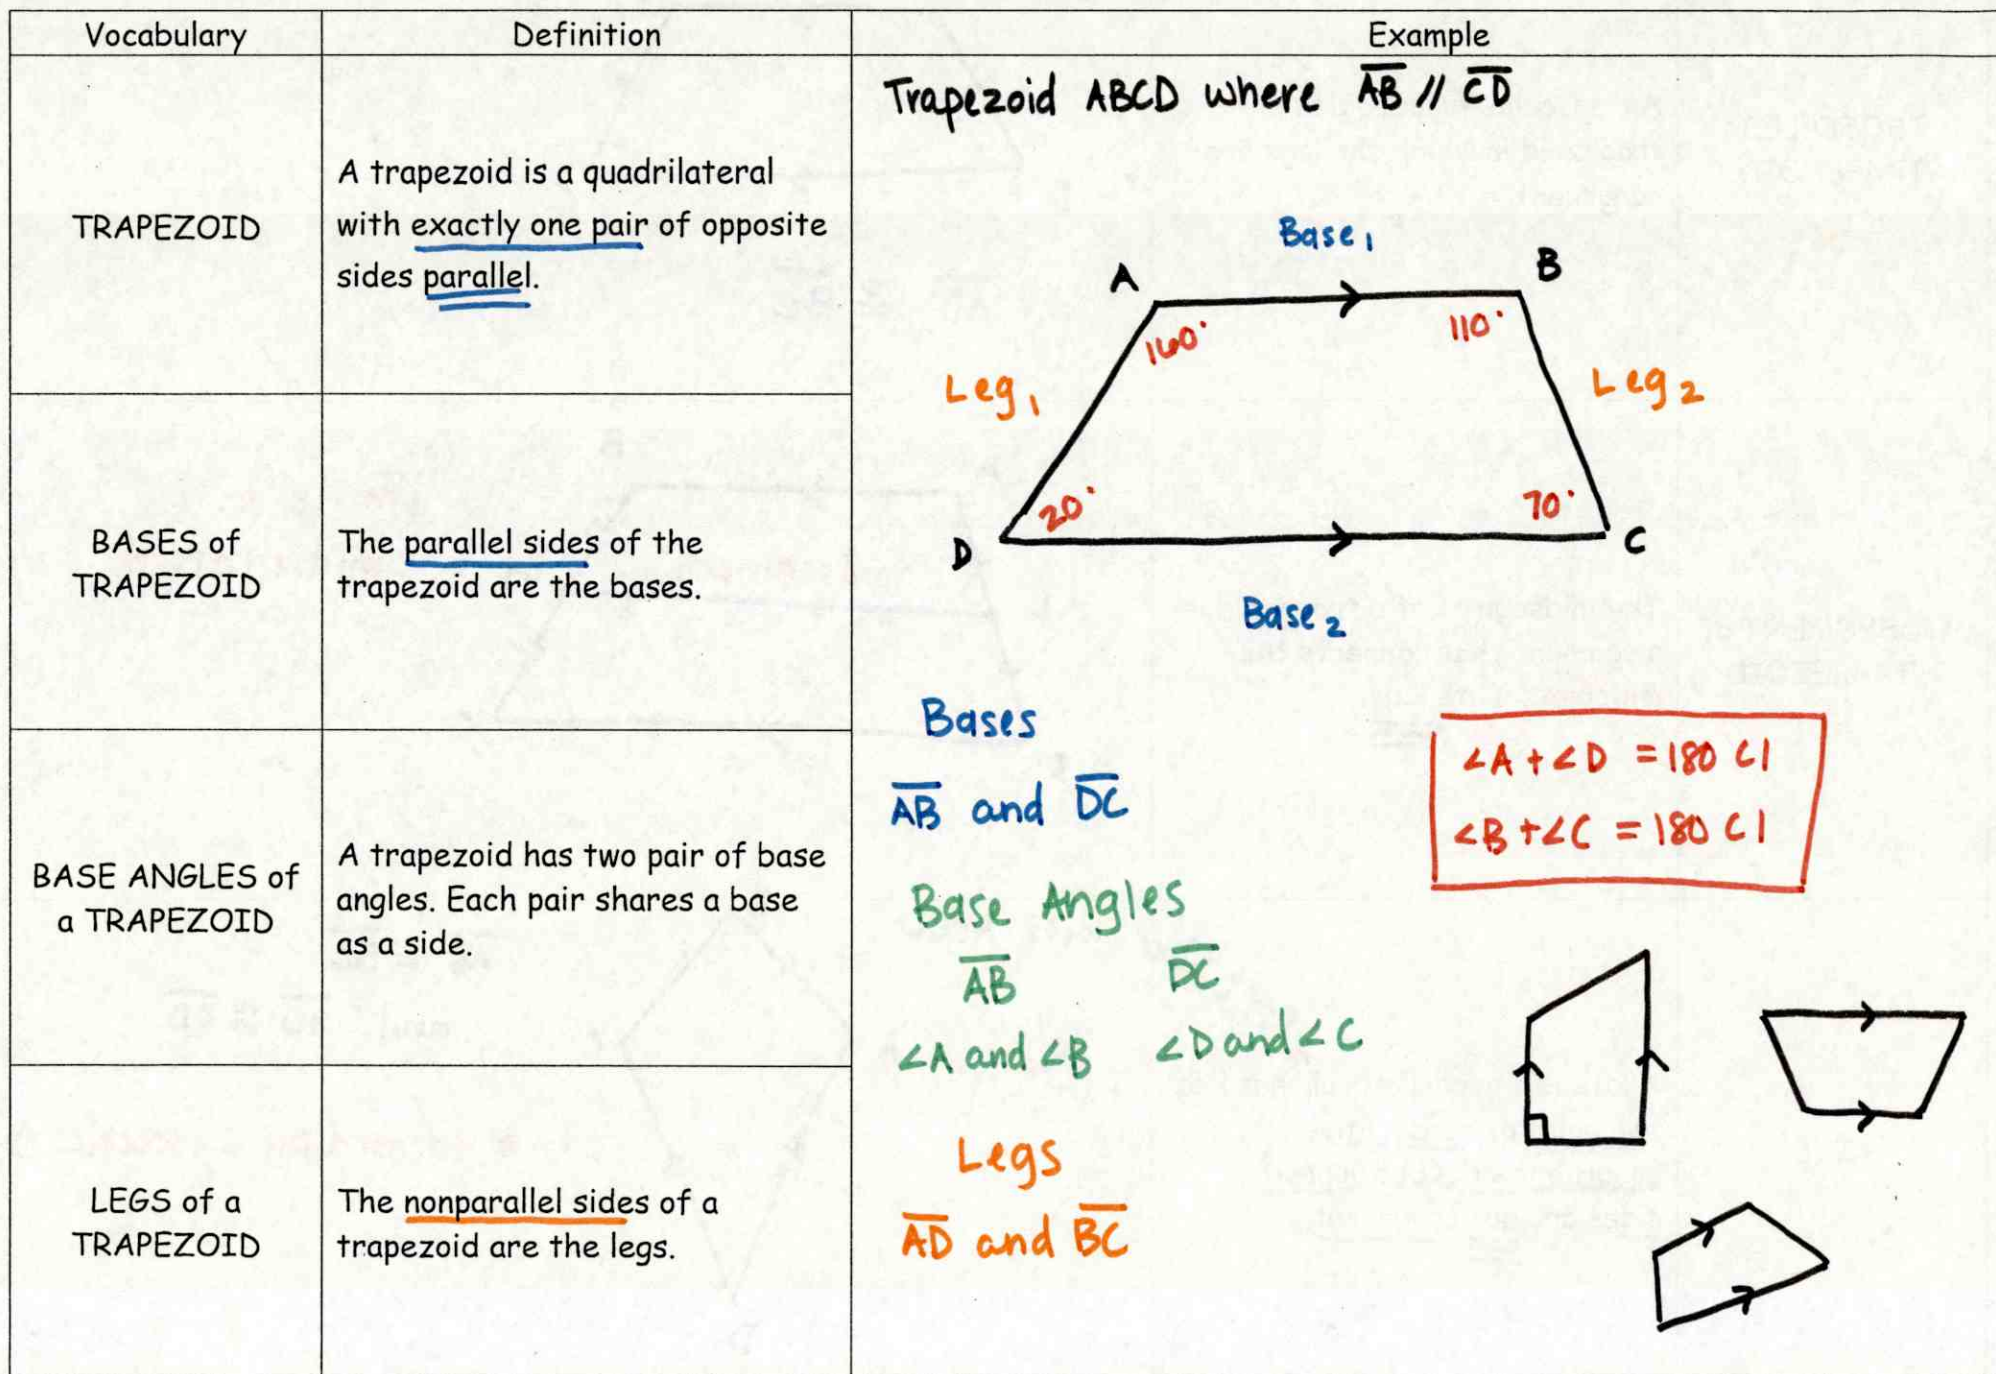 Vocabulary
Definition
Example
TRAPEZOID
A trapezoid is a quadrilateral
with exactly one pair of opposite
sides parallel.
BASES of
TRAPEZOID
The parallel sides of the
trapezoid are the bases.
BASE ANGLES of
a TRAPEZOID
A trapezoid has two pair of base
angles. Each pair shares a base
as a side.
LEGS of a
TRAPEZOID
The nonparallel sides of a
trapezoid are the legs.
Trapezoid ABCD where A̅B̅ // C̅D̅
Base₁
A
B
160°
110°
Leg₁
Leg₂
20°
70°
D
C
Base₂
Bases
A̅B̅ and D̅C̅
∠A + ∠D = 180 CI
∠B + ∠C = 180 CI
Base Angles
A̅B̅ D̅C̅
∠A and ∠B ∠D and ∠C
Legs
A̅D̅ and B̅C̅